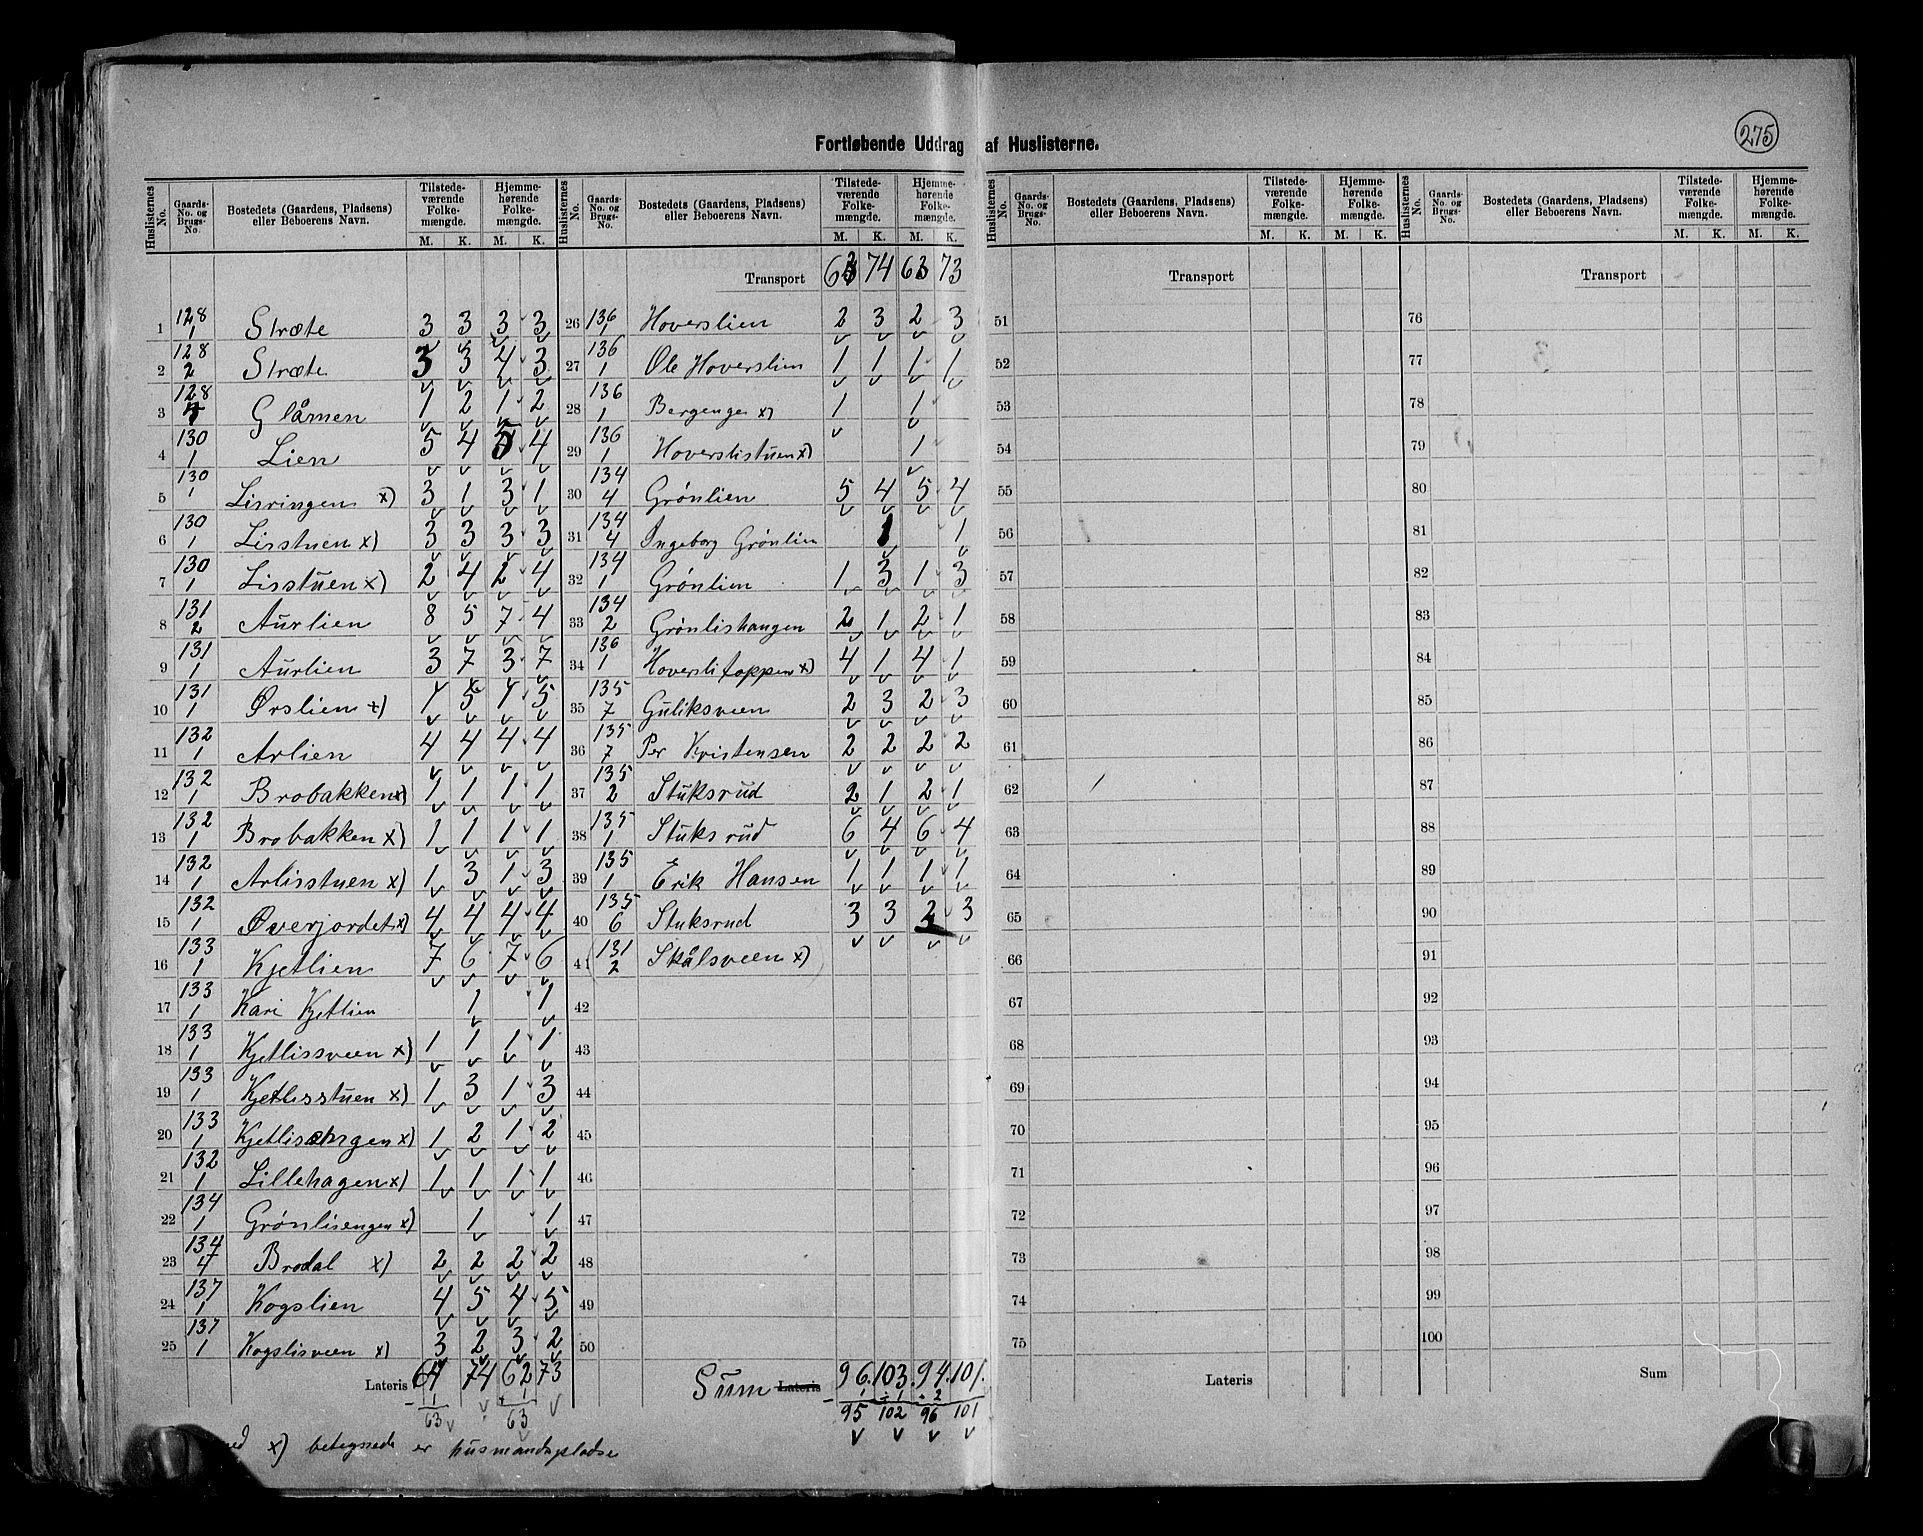 275
Fortløbende Uddrag af Huslisterne.
Huslisternes No. | Gaards-No. og Brugs-No. | Bostedets (Gaardens, Pladsens) eller Beboerens Navn. | Tilstedeværende Folkemængde. M. K. | Hjemmehørende Folkemængde. M. K.
1 128/1 Stræte 3 3 3 3
2 128/2 Stræte 3 3 4 3
3 128/4 Glårnen 1 2 1 2
4 130/1 Lien 5 4 5 4
5 130/1 Lisringen x) 3 1 3 1
6 130/1 Lisstuen x) 3 3 3 3
7 130/1 Lisstuen x) 2 4 2 4
8 131/2 Aurlien 8 5 7 4
9 131/1 Aurlien 3 7 3 7
10 131/1 Ørslien x) 1 5 1 5
11 132/1 Arlien 4 4 4 4
12 132/1 Brobakken x) 1 1 1 1
13 132/1 Brobakken x) 1 1 1 1
14 132/1 Arlisstuen x) 1 3 1 3
15 132/1 Øverjordet x) 4 4 4 4
16 133/1 Kjetlien 7 6 7 6
17 133/1 Kari Kjetlien 1 1
18 133/1 Kjetlissveen x) 1 1 1 1
19 133/1 Kjetlisstuen x) 1 3 1 3
20 133/1 x) 1 2 1 2
21 132/1 Lillehagen x) 1 1 1 1
22 134/1 Grønlisengen x) 1 1
23 134/4 Brodal x) 2 2 2 2
24 137/1 Kogslien 4 5 4 5
25 137/1 Kogslisveen x) 3 2 3 2
Lateris 64 74 62 73
1 1
63 63
x) betegnede er husmandspladse
Huslisternes No. | Gaards-No. og Brugs-No. | Bostedets (Gaardens, Pladsens) eller Beboerens Navn. | Tilstedeværende Folkemængde. M. K. | Hjemmehørende Folkemængde. M. K.
Transport 63 74 63 73
26 136/1 Hoverslien 2 3 2 3
27 136/1 Ole Hoverslien 1 1 1 1
28 136/1 Bergenge x) 1 1
29 136/1 Hoverslistuen x) 1
30 134/4 Grønlien 5 4 5 4
31 134/4 Ingeborg Grønlien 1 1
32 134/1 Grønlien 1 3 1 3
33 134/2 Grønlishaugen 2 1 2 1
34 136/1 Hoverslitoppen x) 4 1 4 1
35 135/7 Guliksveen 2 3 2 3
36 135/7 Per Kristensen 2 2 2 2
37 135/2 Stuksrud 2 1 2 1
38 135/1 Stuksrud 6 4 6 4
39 135/1 Erik Hansen 1 1 1 1
40 135/6 Stuksrud 3 3 3
41 (131/2 Skålsveen x)
42
43
44
45
46
47
48
49
50
Sum Lateris 96. 103. 94. 101.
1 1 2
95 102 96 101
Huslisternes No. | Gaards-No. og Brugs-No. | Bostedets (Gaardens, Pladsens) eller Beboerens Navn. | Tilstedeværende Folkemængde. M. K. | Hjemmehørende Folkemængde. M. K.
Transport
51
52
53
54
55
56
57
58
59
60
61
62
63
64
65
66
67
68
69
70
71
72
73
74
75
Lateris
Huslisternes No. | Gaards-No. og Brugs-No. | Bostedets (Gaardens, Pladsens) eller Beboerens Navn. | Tilstedeværende Folkemængde. M. K. | Hjemmehørende Folkemængde. M. K.
Transport
76
77
78
79
80
81
82
83
84
85
86
87
88
89
90
91
92
93
94
95
96
97
98
99
100
Sum